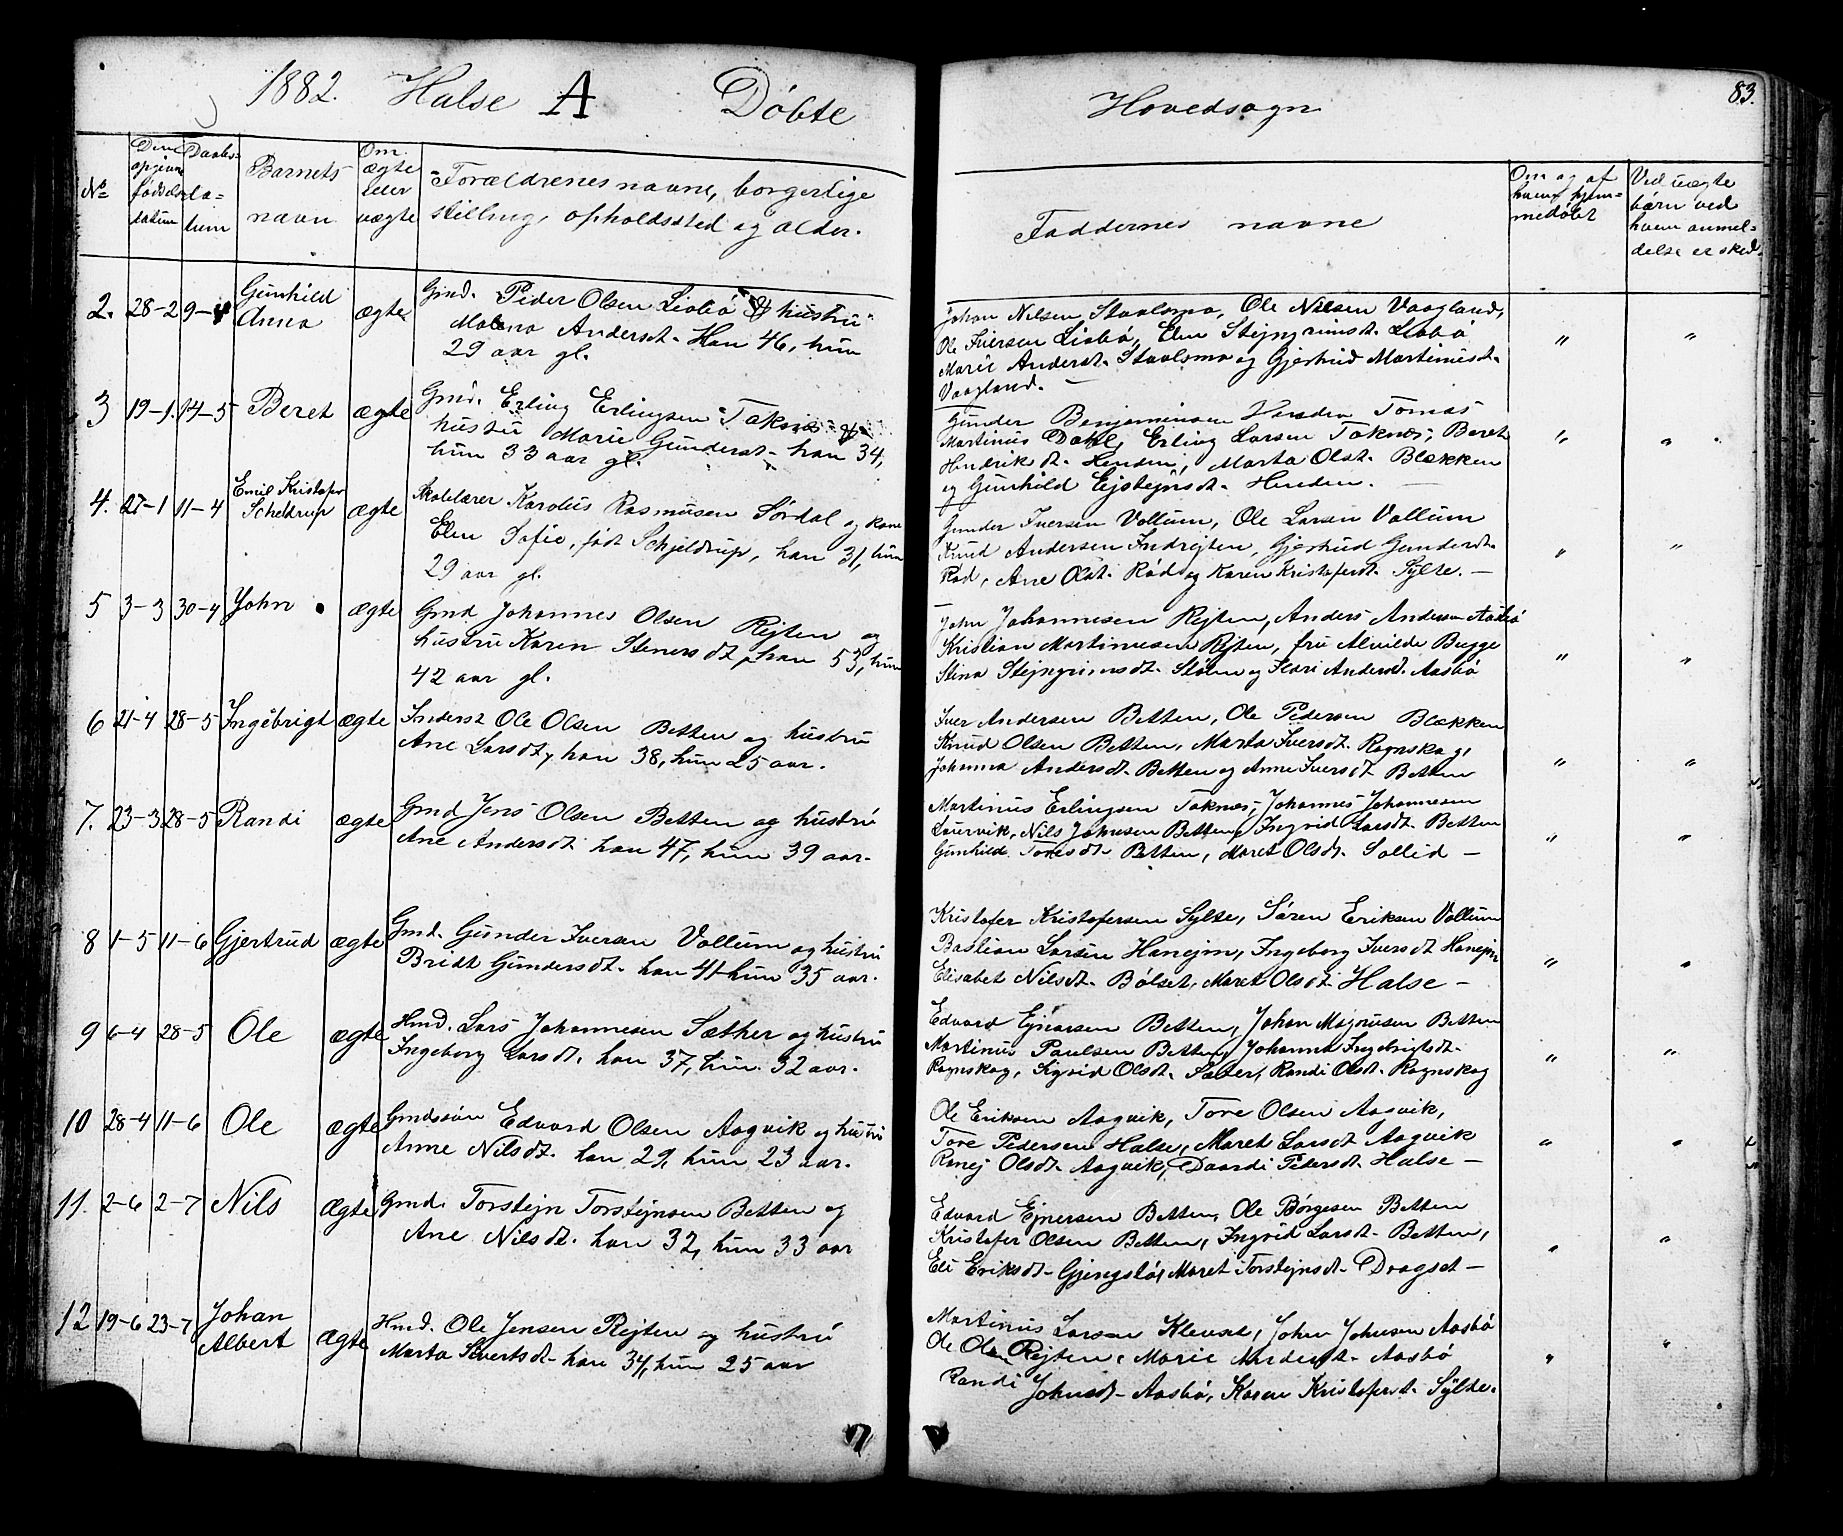 1882. Halse A Døbte
Hovedsogn
83.
No
Den opgivne fødselsdatum
Daabsdatum
Barnets navn
Om ægte eller uægte
Forældrenes navne, borgerlige
stilling, opholdssted og alder.
Faddernes navne
Om og af hvem hjemmedøbt
Ved uægte børn ved hvem anmeldelse er sked.
2. 28-2 9-4 Gunhild Anna ægte
Gmd. Peder Olsen Liabø & hustru
Malena Andersdt. Han 46, hun
29 aar gl.
Johan Nilsen Staalsmo, Ole Nilsen Vaagland,
Ole Iversen Liabø, Elen Stejngrimsdt. Liabø
Marie Andersdt. Staalsmo og Gjertrud Martinusdt.
Vaagland. —
" "
3 19-1. 14-5 Beret ægte
Gmd. Erling Erlingsen Taknæs &
hustru Marie Gundersdt. han 34,
hun 33 aar gl.
Gunder Benjaminsen Henden Tomas
Martinus Dahl, Erling Larsen Taknæs, Beret
Hendriksdt. Henden, Marta Olsdt. Blækken
og Gunhild Ejstejnsdt. Henden. —
" "
4. 27-1 11-4 Emil Kristofer Scheldrup ægte
Skolelærer Karolus Rasmusen Sørdal og kone
Elen Sofie, født Schjeldrup, han 31, hun
29 aar gl.
Gunder Iversen Vollum, Ole Larsen Vollum
Knud Andersen Indrejten, Gjertrud Gundersdt.
Rød, Ane Olsdt. Rød og Karen Kristofersdt. Sylte. —
" "
5 3-3 30-4 John ægte
Gmd Johannes Olsen Rejten og
hustru Karen Stenersdt, han 53, hun
42 aar gl.
John Johannesen Rejten, Anders Andersen Aasbø
Kristian Martinusen Rejten, fru Alvilde Bugge
Stina Stejngrimsdt. Stølen og Kari Andersdt. Aasbø
" "
6 21-4 28-5 Ingebrigt ægte
Inderst Ole Olsen Betten og hustru
Ane Larsdt, han 38, hun 25 aar.
Iver Andersen Betten, Ole Pedersen Blækken
Knud Olsen Betten, Marta Iversdt. Rognskog,
Johanna Andersdt. Betten og Anne Iversdt Betten
" "
7. 23-3 28-5 Randi ægte
Gmd Jens Olsen Betten og hustru
Ane Andersdt. han 47, hun 39 aar.
Martinus Erlingsen Taknæs, Johannes Johannesen
Laurvik, Nils Johnsen Betten, Ingrid Larsdt. Betten
Gunhild Toresdt. Betten, Maret Olsdt. Sollid —
" "
8 1-5 11-6 Gjertrud ægte
Gmd. Gunder Iversen Vollum og hustru
Bridt Gundersdt. han 41 hun 35 aar.
Kristofer Kristofersen Sylte, Søren Eriksen Vollum
Bastian Larsen Hanejm, Ingeborg Iversdt Hanejm
Elisabet Nilsdt. Bølset, Maret Olsdt. Halse —
" "
9 6-4 28-5 Ole ægte
Hmd. Lars Johannesen Sæther og hustru
Ingeborg Larsdt. han 37, hun 32 aar.
Edvard Ejnarsen Betten, Johan Magnusen Betten
Martinus Paulsen Betten, Johanna Ingebrigtsdt.
Rognskog, Sigrid Olsdt. Sæter, Randi Olsdt. Rognskog
" "
10 28-4 11-6 Ole ægte
Gmdssøn Edvard Olsen Aagvik og hustru
Anne Nilsdt. han 29, hun 23 aar.
Ole Eriksen Aagvik, Tore Olsen Aagvik,
Tore Pedersen Halse, Maret Larsdt Aagvik
Ranej Olsdt. Aagvik, Daardi Pedersdt. Halse —
" "
11. 2-6 2-7 Nils ægte
Gmd. Torstejn Torstejnsen Betten og
Ane Nilsdt. han 32, hun 33 aar
Edvard Ejnersen Betten, Ole Børgesen Betten
Kristofer Olsen Betten, Ingrid Larsdt. Betten,
Eli Eriksdt. Gjengstø, Maret Torstejnsdt. Dragset —
" "
12 19-6 23-7 Johan Albert ægte
Hmd. Ole Jensen Rejten og hustru
Marta Sivertsdt. han 34, hun 25 aar
Martinus Larsen Klevset, John Johnsen Aasbø
Ole Olsen Rejten, Marie Andersdt. Aasbø
Randi Johnsdt. Aasbø, Karen Kristofersdt. Sylte.
" "